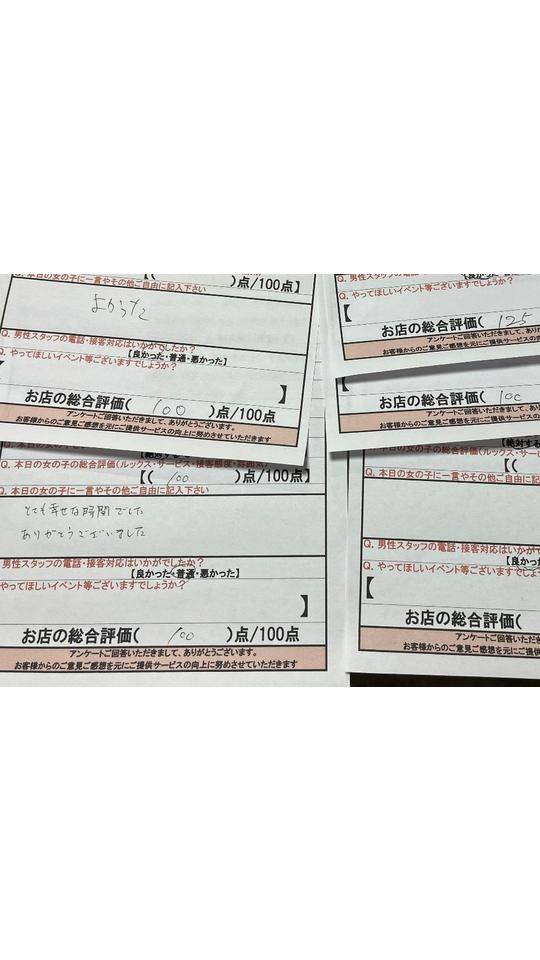 Q. 本日の女の子に一言やその他ご自由に記入下さい
【( )点/100点】
よかった
Q. 男性スタッフの電話・接客対応はいかがでしたか?
【良かった・普通・悪かった】
Q. やってほしいイベント等ございますでしょうか?
】
お店の総合評価( 100 )点/100点
アンケートご回答いただきまして、ありがとうございます。
お客様からのご意見ご感想を元にご提供サービスの向上に努めさせていただきます
Q. 本日の女の子の総合評価(ルックス・サービス・接客態度・雰囲気)
【( 100 )点/100点】
Q. 本日の女の子に一言やその他ご自由に記入下さい
とても幸せな時間でした
ありがとうございました
男性スタッフの電話・接客対応はいかがでしたか?
【良かった・普通・悪かった】
やってほしいイベント等ございますでしょうか?
】
お店の総合評価( 100 )点/100点
アンケートご回答いただきまして、ありがとうございます。
お客様からのご意見ご感想を元にご提供サービスの向上に努めさせていただきます
【良かった・普
Q. やってほしいイベント等ございますでしょうか?
【
お店の総合評価( 125
アンケートご回答いただきまして、あり
お客様からのご意見ご感想を元にご提供サービス
【
お店の総合評価( 100
アンケートご回答いただきまして、あ
お客様からのご意見ご感想を元にご提供サービスの
【絶対する
Q. 本日の女の子の総合評価(ルックス・サービ
【(
Q. 本日の女の子に一言やその他ご自由に記入
Q. 男性スタッフの電話・接客対応はいかがで
【良かっ
Q. やってほしいイベント等ございますでしょうか
【
お店の総合評価(
アンケートご回答いただきま
お客様からのご意見ご感想を元にご提供